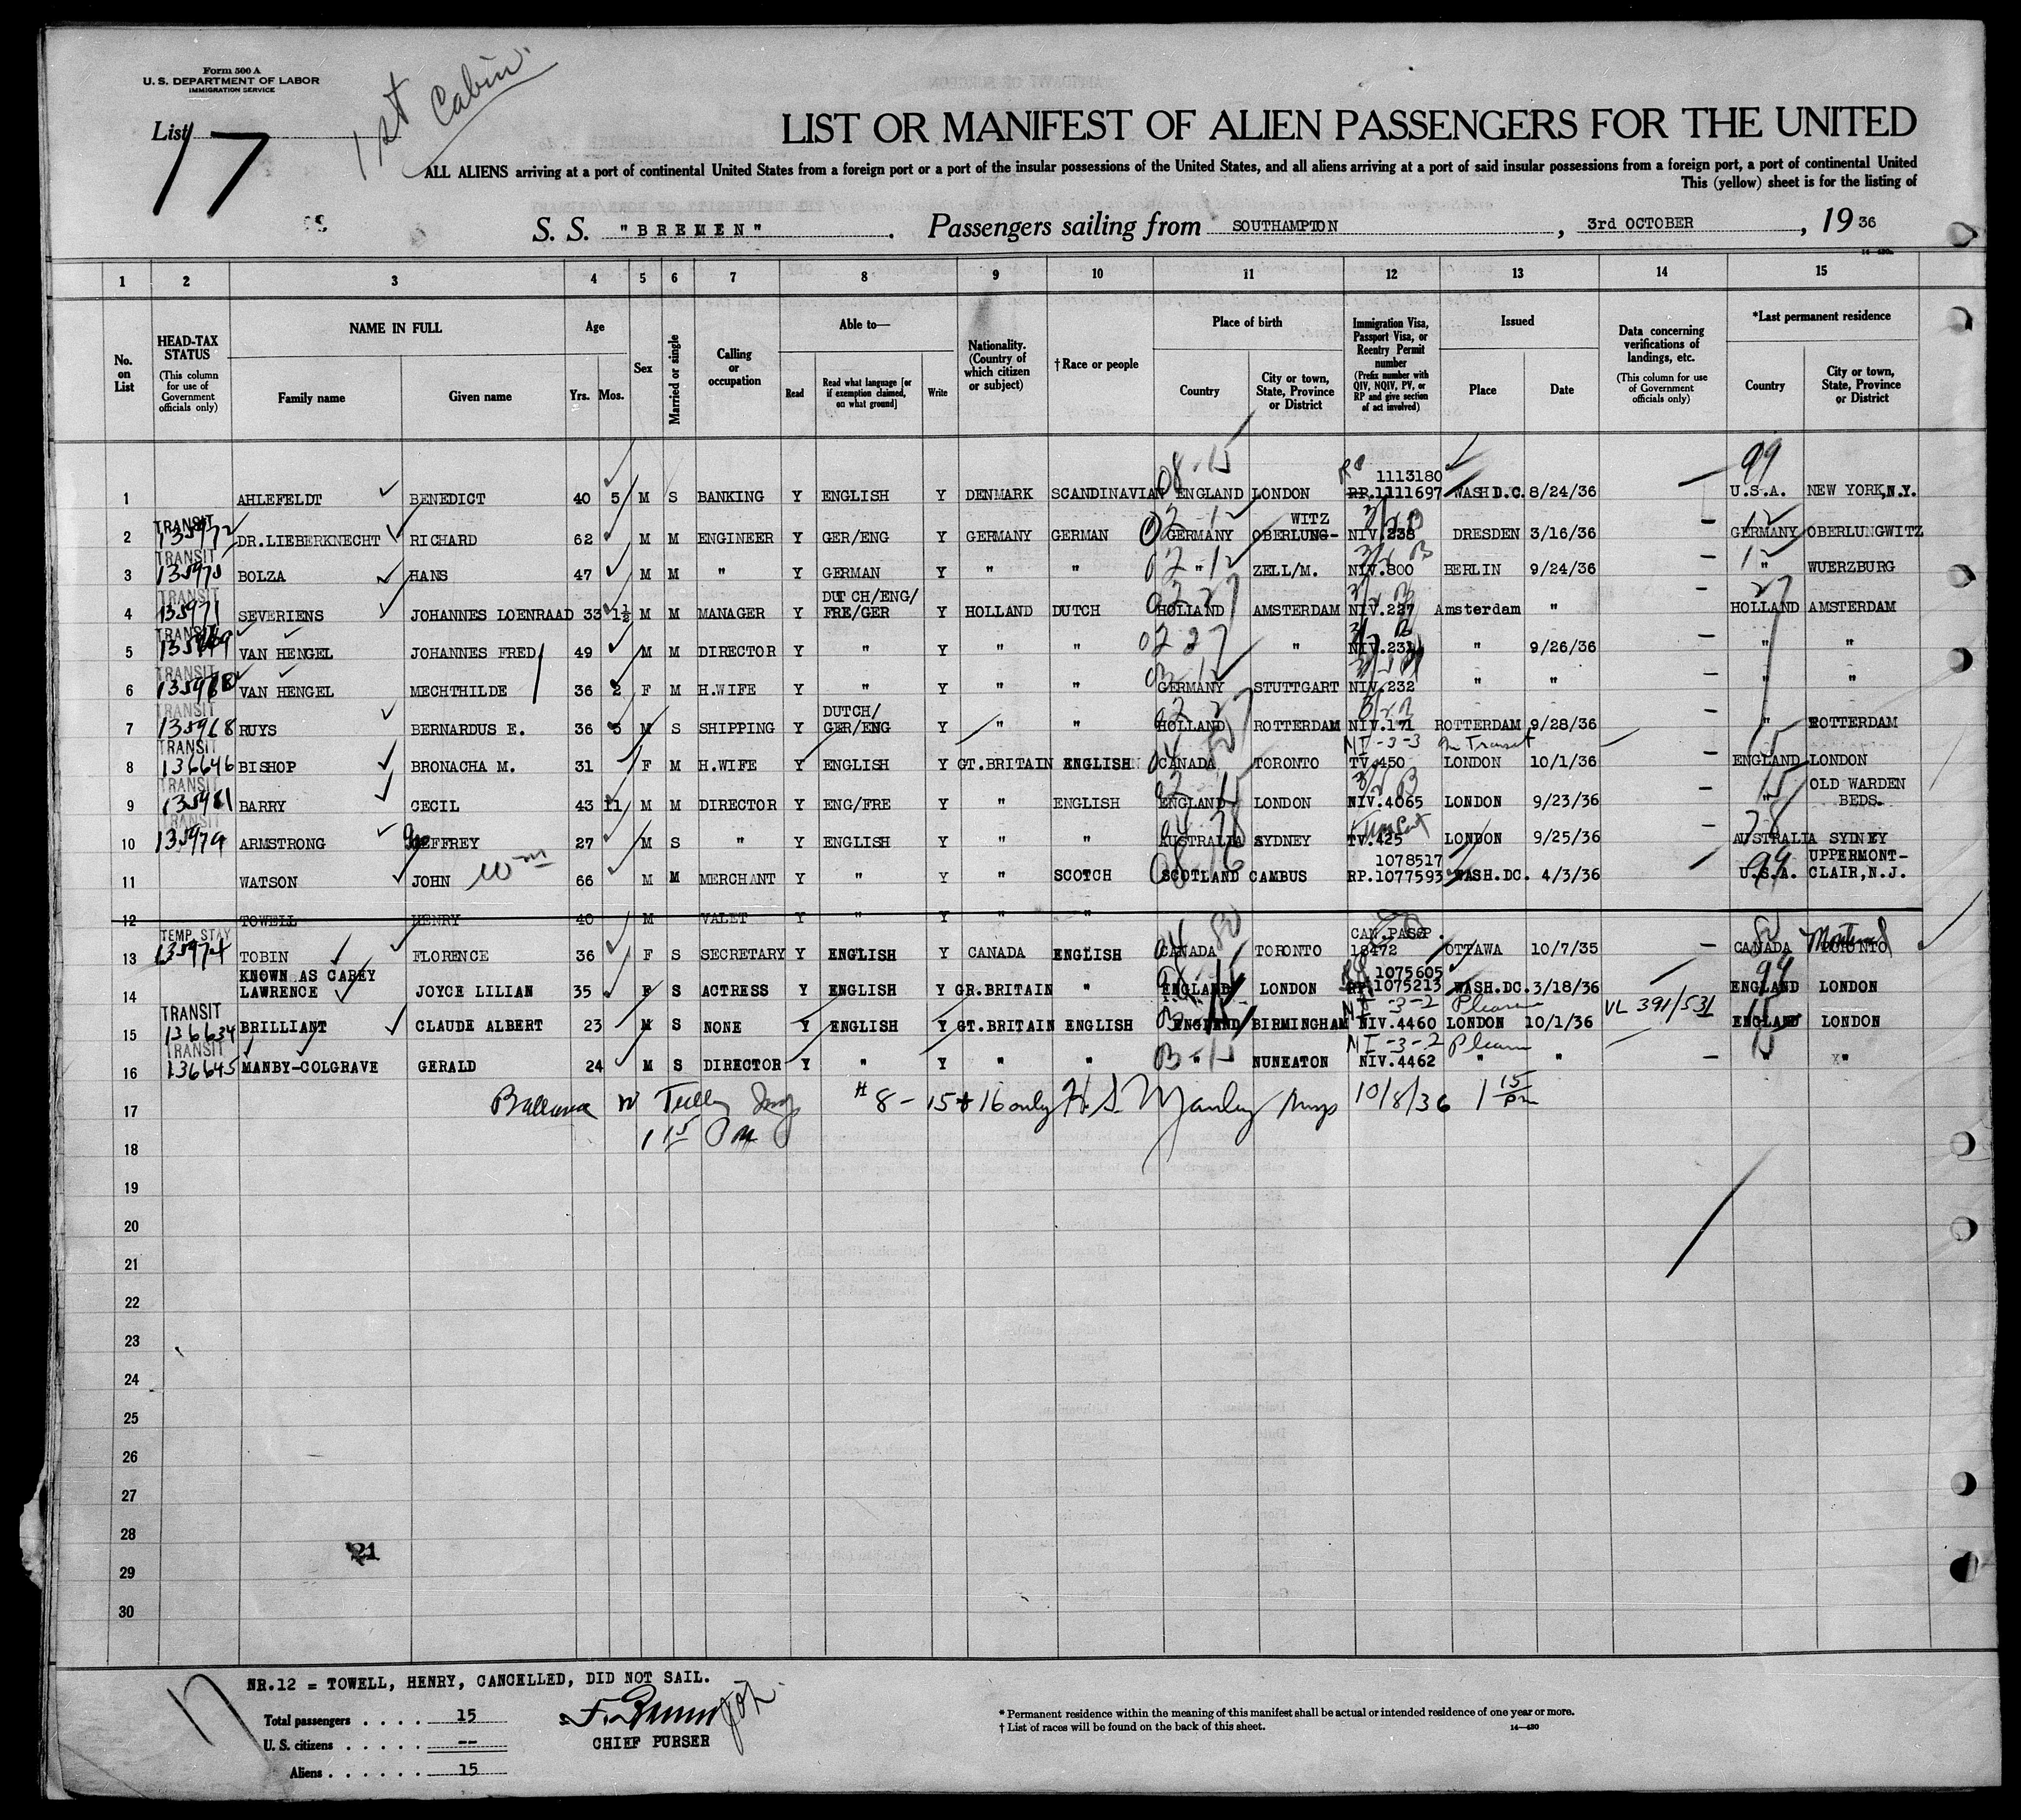 Form 500 A
U. S. DEPARTMENT OF LABOR
IMMIGRATION SERVICE
List 17
1st Cabin
LIST OR MANIFEST OF ALIEN PASSENGERS FOR THE UNITED
ALL ALIENS arriving at a port of continental United States from a foreign port or a port of the insular possessions of the United States, and all aliens arriving at a port of said insular possessions from a foreign port, a port of continental United
This (yellow) sheet is for the listing of
S. S. "BREMEN". Passengers sailing from SOUTHAMPTON, 3rd OCTOBER, 1936
1 2 3 4 5 6 7 8 9 10 11 12 13 14 15
No. on List
HEAD-TAX STATUS (This column for use of Government officials only)
NAME IN FULL
Family name Given name
Age
Yrs. Mos.
Sex
Married or single
Calling or occupation
Able to—
Read
Read what language [or if exemption claimed, on what ground]
Write
Nationality. (Country of which citizen or subject)
†Race or people
Place of birth
Country
City or town, State, Province or District
Immigration Visa, Passport Visa, or Reentry Permit number (Prefix number with QIV, NQIV, PV, or RP and give section of act involved)
Issued
Place Date
Data concerning verifications of landings, etc. (This column for use of Government officials only)
*Last permanent residence
Country
City or town, State, Province or District
1 AHLEFELDT BENEDICT 40 5 M S BANKING Y ENGLISH Y DENMARK SCANDINAVIAN ENGLAND LONDON 1113180 RP.1111697 WASH D.C. 8/24/36 99 U.S.A. NEW YORK,N.Y.
2 TRANSIT 135972 DR.LIEBERKNECHT RICHARD 62 M M ENGINEER Y GER/ENG Y GERMANY GERMAN GERMANY OBERLUNG-WITZ NIV.238 DRESDEN 3/16/36 GERMANY OBERLUNGWITZ
3 TRANSIT BOLZA HANS 47 M M " Y GERMAN Y " " " ZELL/M. NIV.800 BERLIN 9/24/36 " WUERZBURG
4 TRANSIT 135971 SEVERIENS JOHANNES LOENRAAD 33 1½ M M MANAGER Y DUTCH/ENG/FRE/GER Y HOLLAND DUTCH HOLLAND AMSTERDAM NIV.227 Amsterdam " HOLLAND AMSTERDAM
5 TRANSIT VAN HENGEL JOHANNES FRED 49 M M DIRECTOR Y " Y " " " NIV.231 " 9/26/36 " "
6 TRANSIT VAN HENGEL MECHTHILDE 36 2 F M H.WIFE Y " Y " " GERMANY STUTTGART NIV.232 " " " "
7 TRANSIT 135968 RUYS BERNARDUS E. 36 5 M S SHIPPING Y DUTCH/GER/ENG Y " " HOLLAND ROTTERDAM NIV.171 ROTTERDAM 9/28/36 " ROTTERDAM
8 TRANSIT 136646 BISHOP BRONACHA M. 31 F M H.WIFE Y ENGLISH Y GT.BRITAIN ENGLISH CANADA TORONTO NI-3-3 In Transit TV.450 LONDON 10/1/36 ENGLAND LONDON
9 TRANSIT 135981 BARRY CECIL 43 11 M M DIRECTOR Y ENG/FRE Y " ENGLISH ENGLAND LONDON NIV.4065 LONDON 9/23/36 " OLD WARDEN BEDS.
10 TRANSIT 135979 ARMSTRONG GEFFREY 27 M S " Y ENGLISH Y " " AUSTRALIA SYDNEY TV.425 LONDON 9/25/36 AUSTRALIA SYDNEY
11 WATSON JOHN Wm 66 M M MERCHANT Y " Y " SCOTCH SCOTLAND CAMBUS 1078517 RP.1077593 WASH.DC. 4/3/36 99 U.S.A. UPPERMONT-CLAIR,N.J.
12 TOWELL HENRY 40 M VALET Y " Y " "
13 TEMP. STAY 135974 TOBIN FLORENCE 36 F S SECRETARY Y ENGLISH Y CANADA ENGLISH CANADA TORONTO CAN.PASP. 18472 OTTAWA 10/7/35 CANADA TORONTO Montreal
14 KNOWN AS CAREY LAWRENCE JOYCE LILIAN 35 F S ACTRESS Y ENGLISH Y GR.BRITAIN " ENGLAND LONDON 1075605 RP.1075213 WASH.DC. 3/18/36 99 ENGLAND LONDON
15 TRANSIT 136634 BRILLIANT CLAUDE ALBERT 23 M S NONE Y ENGLISH Y GT.BRITAIN ENGLISH ENGLAND BIRMINGHAM NI-3-2 Pleasure NIV.4460 LONDON 10/1/36 VL 391/531 ENGLAND LONDON
16 TRANSIT 136645 MANBY-COLGRAVE GERALD 24 M S DIRECTOR Y " Y " " " NUNEATON NI-3-2 Pleasure NIV.4462 " " " "
17 Tulley Insp # 8 - 15 + 16 only H.S. Manley Insp 10/8/36 1 15 pm
18 1 15 PM
19
20
21
22
23
24
25
26
27
28
21
29
30
NR.12 = TOWELL, HENRY, CANCELLED, DID NOT SAIL.
Total passengers . . . . 15
U. S. citizens . . . . . --
Aliens . . . . . . 15
CHIEF PURSER
* Permanent residence within the meaning of this manifest shall be actual or intended residence of one year or more.
† List of races will be found on the back of this sheet.
14—430
17